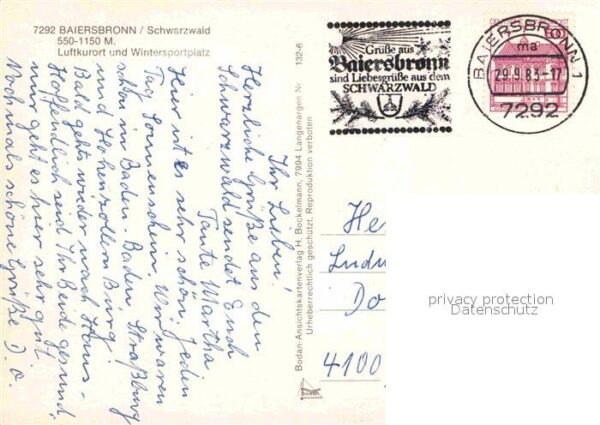 7292 BAIERSBRONN / Schwarzwald
550-1150 M.
Luftkurort und Wintersportplatz
132-6
Bodan-Ansichtskartenverlag H. Bockelmann, 7994 Langenargen Nr.
Urheberrechtlich geschützt. Reproduktion verboten
bodan
Grüße aus
Baiersbronn
sind Liebesgrüße aus dem
SCHWARZWALD
BAIERSBRONN 1
ma
29.9.83-17
7292
60
Ihr Lieben!
Herzliche Grüße aus dem
Schwarzwald sendet Euch
Tante Martha
Hier ist es sehr schön. Jeden
Tag Sonnenschein. Wir waren
schon in Baden-Baden, Straßburg
und Hohenzollern Burg.
Bald gehts wieder nach Haus.
Hoffentlich seid Ihr Beide gesund.
mir geht es hier sehr gut.
Nochmals schöne Grüße D. O.
He
Ludw
Do
4100
privacy protection
Datenschutz